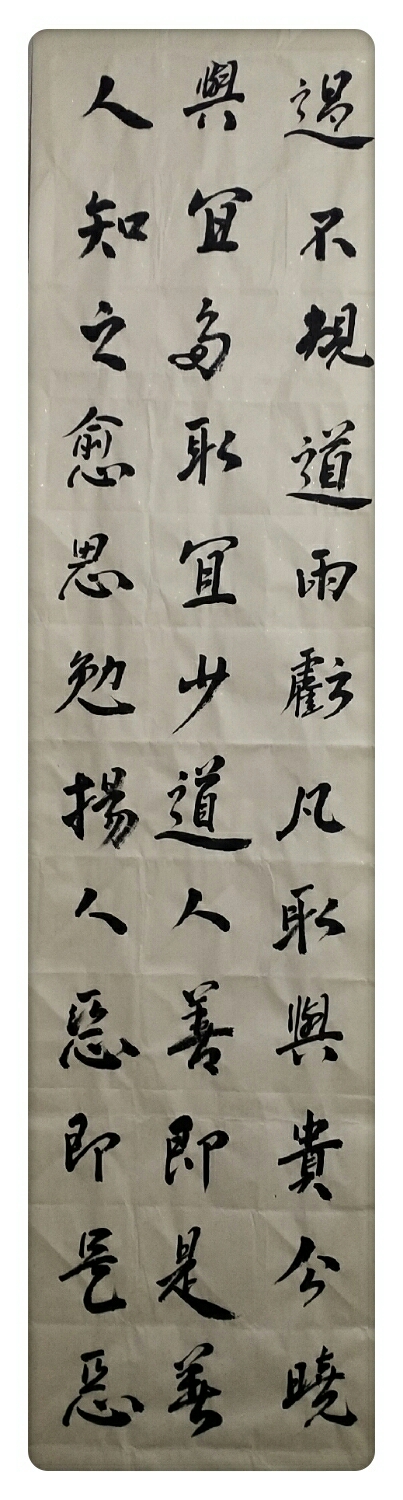 過不規道雨虧凡取與貴公曉
與宜多取宜少道人善即是善
人知之愈思勉揚人惡即是惡